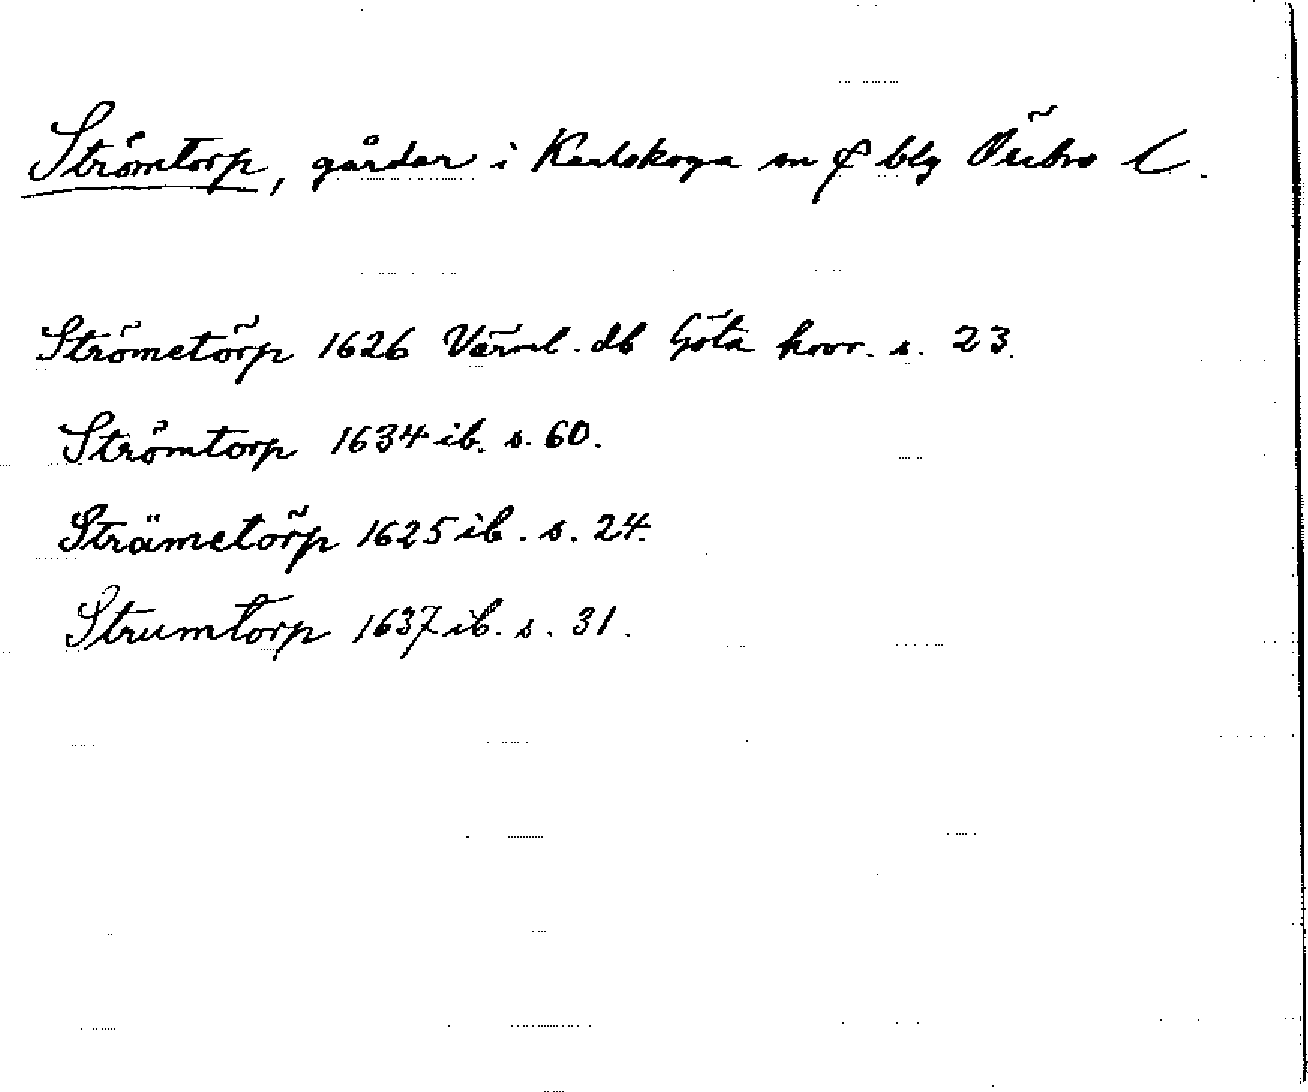 Strömtorp, gårdar i Karlskoga sn o blg Örebro l.
Strömetörp 1626 Värml. db Göta hovr. s. 23.
Strömtorp 1634 ib. s. 60.
Strämetörp 1625 ib. s. 24.
Strumtorp 1637 ib. s. 31.